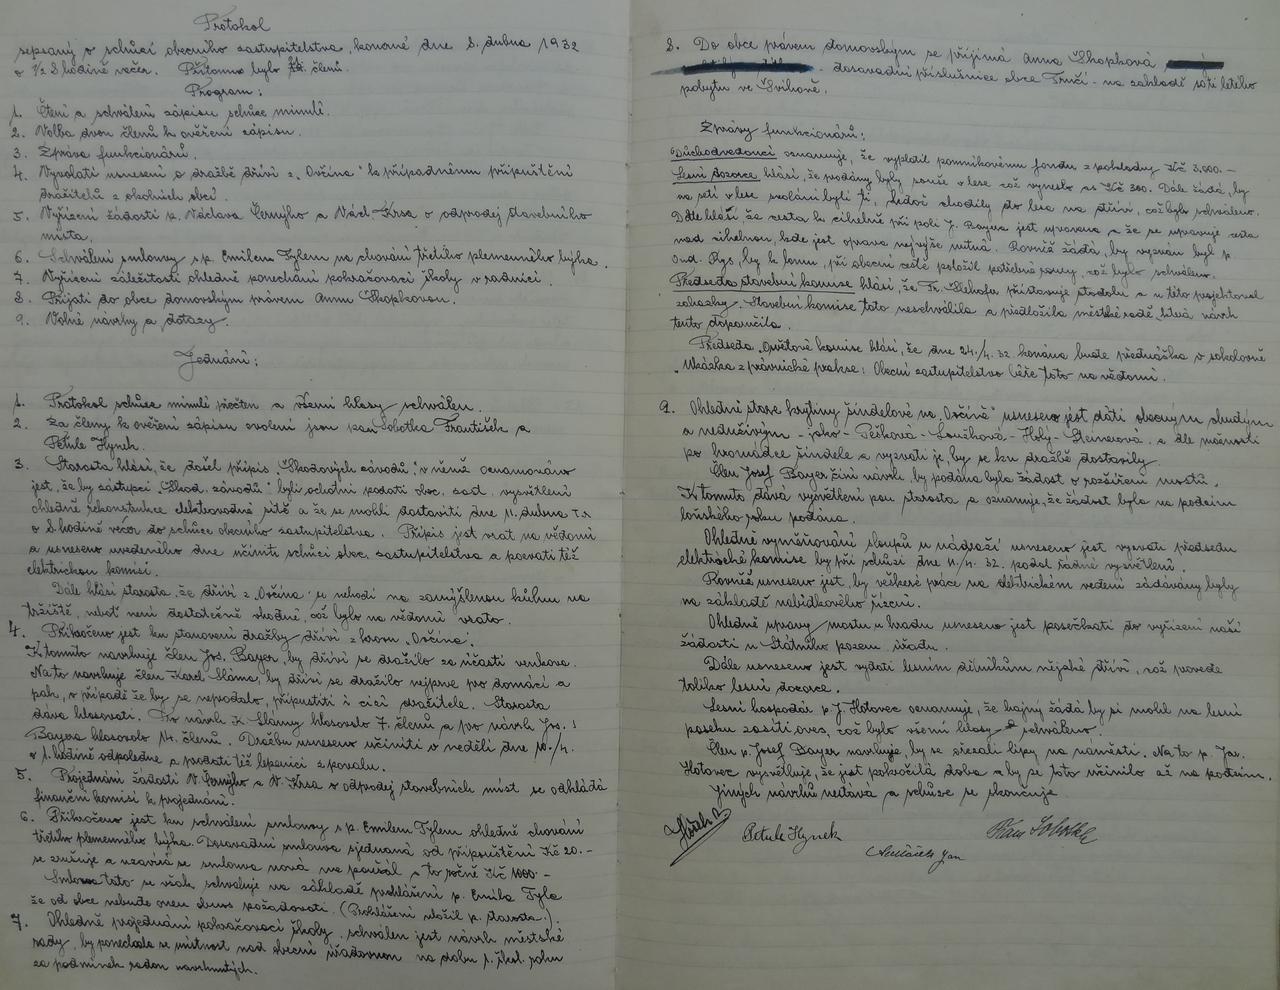 Protokol
sepsaný o schůzi obecního zastupitelstva, konané dne 8. dubna 1932
o ½ 8 hodině večer. Přítomno bylo členů.
Program:
1. Čtení a schválení zápisu schůze minulé.
2. Volba dvou členů k ověření zápisu.
3. Zpráva funkcionářů.
4. Vyvolati usnesení o dražbě dříví z „Ovčína“ k případnému připuštění
dražitelů z okolních obcí.
5. Vyřízení žádostí p. Václava Černýho a Václ. Krsa o odprodej stavebního
místa.
6. Schválení smlouvy s p. Emilem Tylem na chování třetího plemenného býka.
7. Vyřízení záležitosti ohledně ponechání pokračovací školy v radnici.
8. Přijatí do obce domovským právem Annu Škopkovou.
9. Volné návrhy a dotazy.
Jednání:
1. Protokol schůze minulé přečten a všemi hlasy schválen.
2. Za členy k ověření zápisu zvoleni jsou pan Sobotka František a
Petule Hynek.
3. Starosta hlásí, že došel přípis „Škodových závodů“ v němž oznamováno
jest, že by zástupci „Škod. závodů“ byli ochotni podati obec. zast. vysvětlení
ohledně rekonstrukce elektrovodné sítě a že se mohli dostaviti dne 11. dubna t.r.
o 8 hodině večer do schůze obecního zastupitelstva. Přípis jest vzat na vědomí
a usneseno uvedeného dne učiniti schůzi obec. zastupitelstva a pozvati též
elektrickou komisi.
Dále hlásí starosta, že dříví z „Ovčína“ se nehodí na zamýšlenou kůlnu na
tržiště, neboť není dostatečně vhodné, což bylo na vědomí vzato.
4. Přikročeno jest ku stanovení dražby dříví z krovu „Ovčína“.
K tomuto navrhuje člen Jos. Bayer, by dříví se dražilo za účasti venkova.
Na to navrhuje člen Karel Sláma, by dříví se dražilo nejprve pro domácí a
pak, v případě že by se neprodalo, připustiti i cizí dražitele. Starosta
dává hlasovati. Pro návrh K. Slámy hlasovalo 7. členů a pro návrh Jos.
Bayera hlasovalo 14. členů. Dražbu usneseno učiniti v neděli dne 10./4.
v 1. hodině odpoledne a prodati též lepenici z povalu.
5. Projednání žádostí V. Černýho a V. Krsa o odprodej stavebních míst se odkládá
finanční komisi k projednání.
6. Přikročeno jest ku schválení smlouvy s p. Emilem Tylem ohledně chování
třetího plemenného býka. Dosavadní smlouva sjednaná od připouštění Kč 20.-
se zrušuje a uzavírá se smlouva nová na paušál a to ročně Kč 1000.-
Smlouva tato se však schvaluje na základě prohlášení p. Emila Tyla
že od obce nebude onen obnos požadovati. (Prohlášení uložil p. starosta.).
7. Ohledně projednání pokračovací školy, schválen jest návrh městské
rady, by ponechala se místnost nad obecní úřadovnou na dobu 1. škol. roku
za podmínek radou navrhnutých.
8. Do obce právem domovským se přijímá Anna Škopková
dosavadní příslušnice obce Trnčí. na základě 10ti letého
pobytu ve Švihově.
Zprávy funkcionářů:
Důchodvedoucí oznamuje, že vyplatil pomníkovému fondu z pokladny Kč 3,000.-
Lesní dozorce hlásí, že podány byly souše v lese což vyneslo as Kč 300. Dále žádá, by
na setí v lese zvoláni byli ti, kdož chodily do lesa na dříví, což bylo schváleno.
Dále hlásí, že cesta k cihelně při poli J. Bayera jest upravena a že se upravuje cesta
nad cihelnou, kde jest oprava nejvýše nutná. Rovněž žádá, by vyzván byl p.
Ond. Rys, by k domu, při obecní cestě položil potřebné roury, což bylo schváleno.
Předseda stavební komise hlásí, že Fr. Slehofer přistavuje stodolu a u této projektoval
zakazky. Stavební komise toto neschválila a předložila městské radě, která návrh
tento doporučila.
Předseda „Osvětové komise hlásí, že dne 24./4. 32. konána bude přednáška v sokolovně
„Ukázka z právnické prakse: Obecní zastupitelstvo béře toto na vědomí.
9. Ohledně staré krytiny šindelové na „Ovčíně“ usneseno jest dáti obecným chudým
a neduživým - jako - Pešková - Loužková - Holý - Steinerová. a dle možnosti
po hromadce šindele a vyzvati je, by se ku dražbě dostavily.
Člen Josef Bayer činí návrh, by podána byla žádost o rozšíření mostů.
K tomuto dává vysvětlení pan starosta a oznamuje, že žádost byla na podzim
loňského roku podána.
Ohledně vyměňování sloupů u nádraží usneseno jest vyzvati předsedu
elektrické komise by při schůzi dne 11./4. 32. podal řádné vysvětlení.
Rovněž usneseno jest, by veškeré práce na elektrickém vedení zadávány byly
na základě nabídkového řízení.
Ohledně úpravy mostu u hradu usneseno jest posečkati do vyřízení naší
žádosti u Státního pozem. úřadu.
Dále usneseno jest vydati lesním dělníkům nějaké dříví, což provede
toliko lesní dozorce.
Lesní hospodář p. J. Hotovec oznamuje, že hajný žádá by si mohl na lesní
paseku zasíti oves, což bylo všemi hlasy schváleno.
Člen p. Josef Bayer navrhuje, by se ořezali lípy na náměstí. Na to p. Jar.
Hotovec vysvětluje, že jest pokročilá doba a by se toto učinilo až na podzim.
Jiných návrhů nedáva a schůze se skončuje.
Petule Hynek
Jan